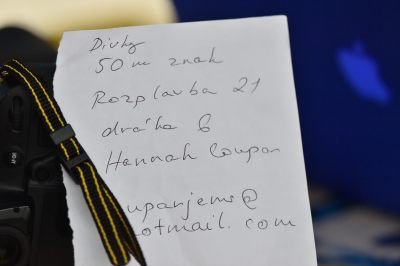 Divky
50 m znak
Rozplavba 21
dráha 6
Hannah Coupan
upanjems@
otmail.com